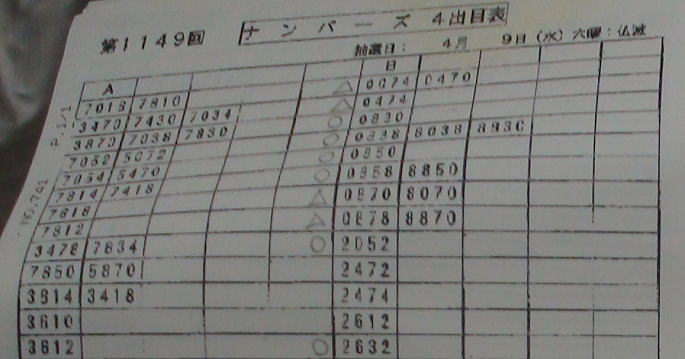 第1149回 ナンバーズ 4出目表
抽選日： 4月 9日（水）六曜：仏滅
P. 1/1
NO.741
A B
7018 7810 △ 0474 0470
3470 7430 7034 △ 0474
3870 7038 7830 ○ 0830
7052 5072 ○ 0838 8038 8830
7054 5470 ○ 0850
7814 7418 ○ 0858 8850
7818 △ 0870 8070
7812 △ 0878 8870
3478 7834 ○ 2052
7850 5870 2472
3814 3418 2474
3610 2612
3612 ○ 2632